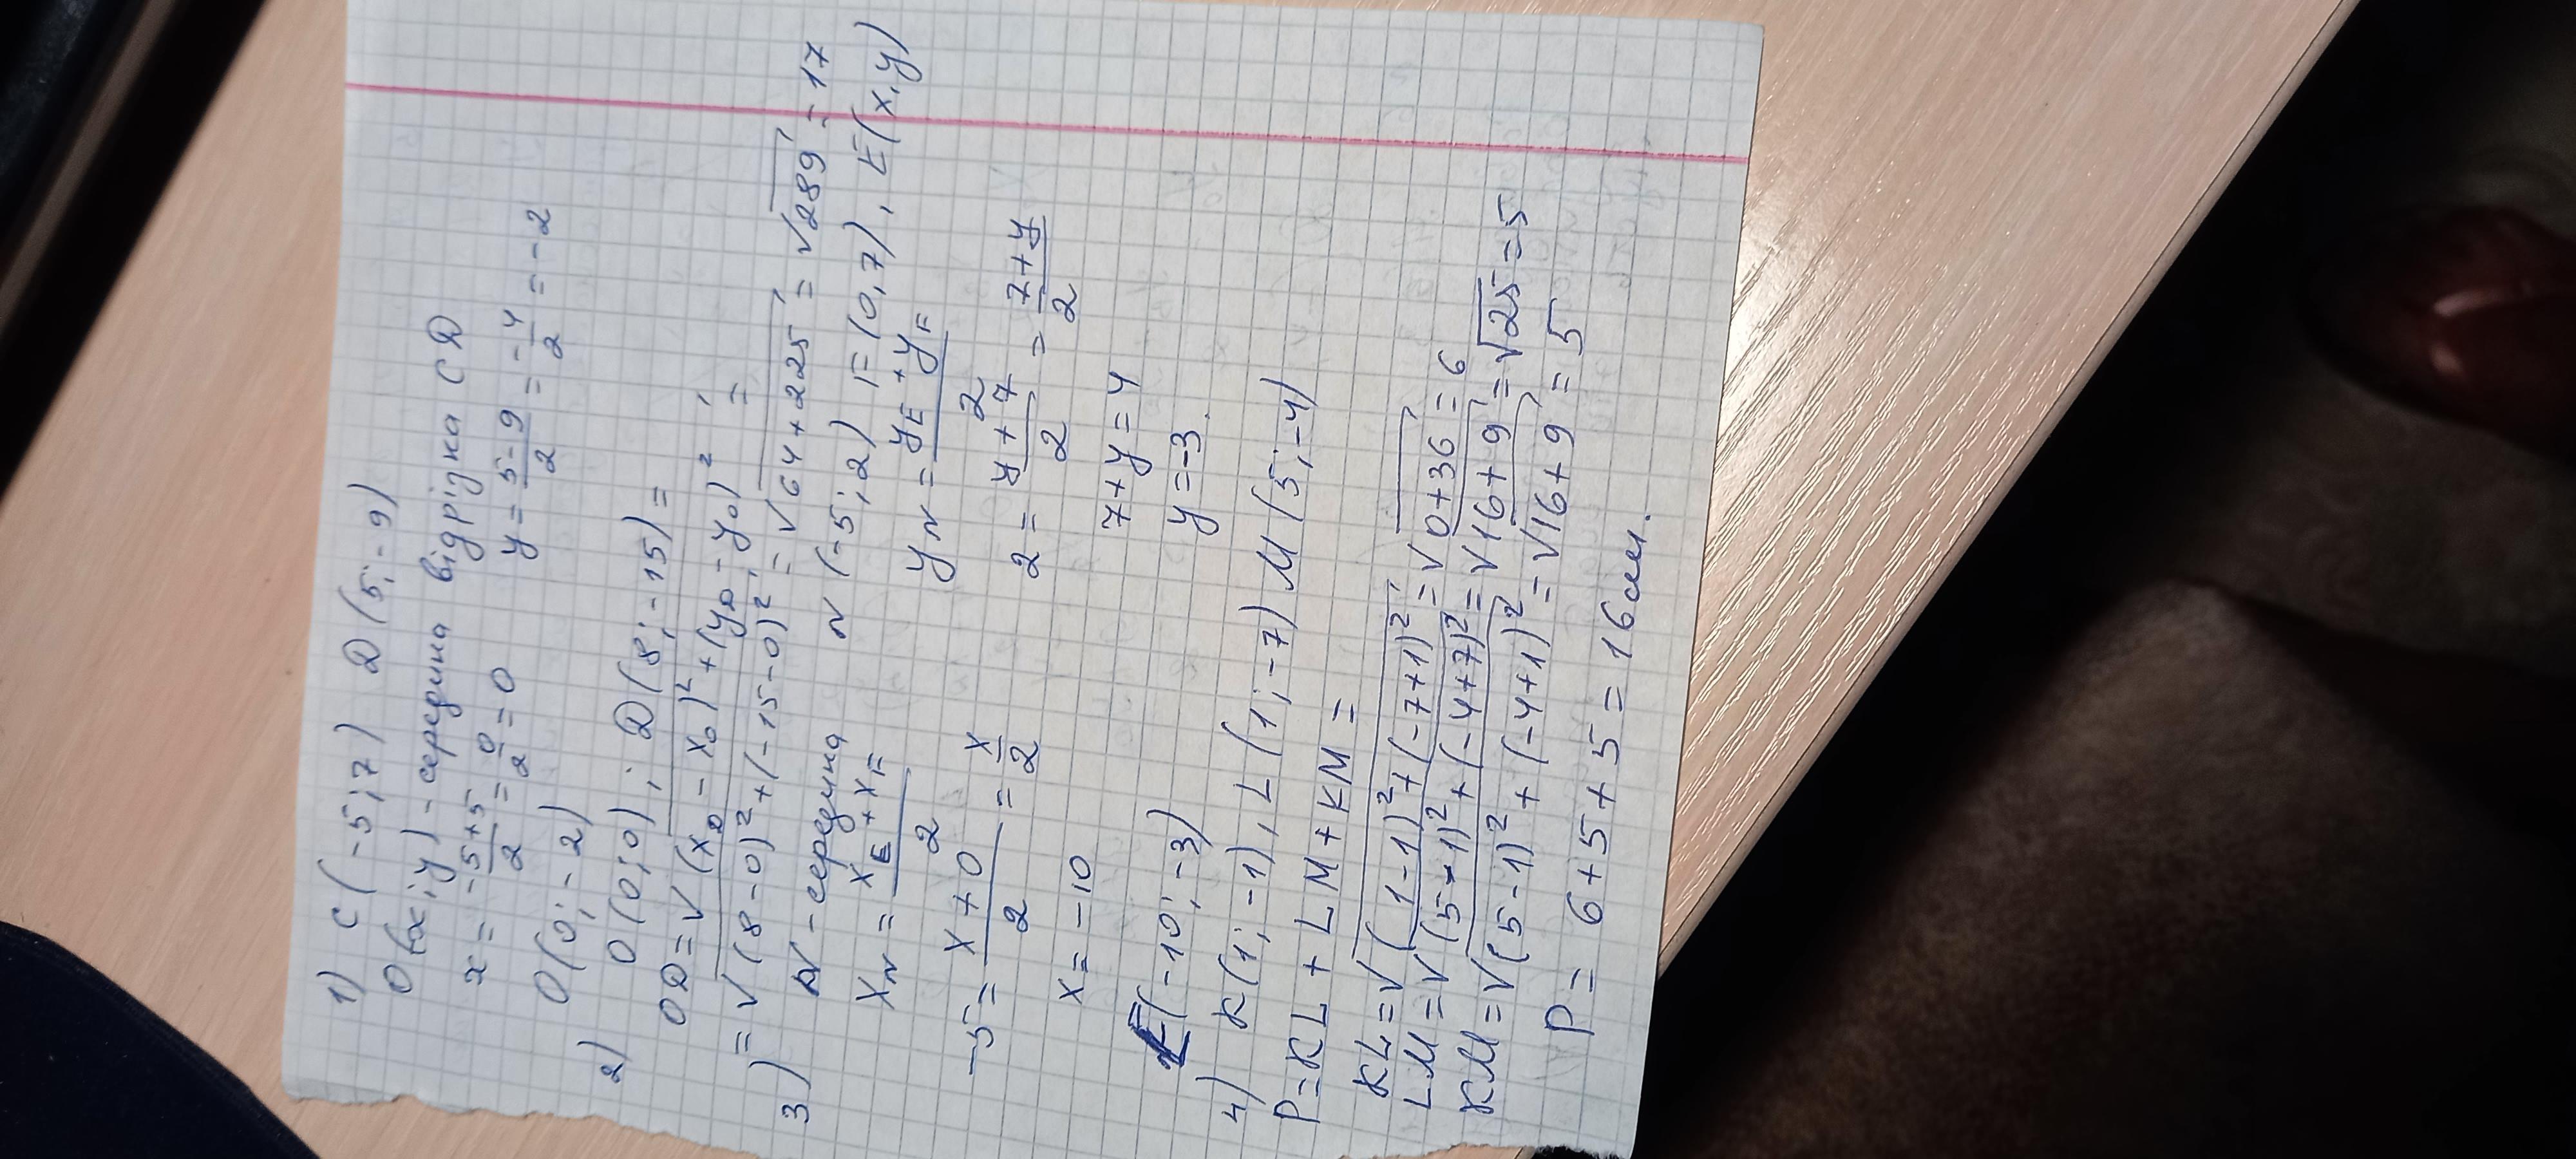 1) C(-5;7) D(5;-9)
O(x;y) - середина відрізка CD
x = -5+5/2 = 0/2 = 0 y = 5-9/2 = -4/2 = -2
O(0;-2)
2) O(0;0); D(8;-15) =
OD = √(xD - xO)² + (yD - yO)² =
= √(8-0)² + (-15-0)² = √64+225 = √289 = 17
3) N - середина N(-5;2) F(0,7), E(x,y)
xN = xE + xF/2 yN = yE + yF/2
-5 = x+0/2 = x/2 2 = y+7/2 = 7+y/2
x = -10 7+y=4
y=-3.
E(-10;-3)
4) K(1;-1), L(1;-7) M(5;-4)
P=KL+LM+KM=
KL=√(1-1)²+(-7+1)² = √0+36 = 6
LM=√(5-1)²+(-4+7)² = √16+9 = √25 = 5
KM=√(5-1)²+(-4+1)² = √16+9 = 5
P = 6+5+5 = 16см.